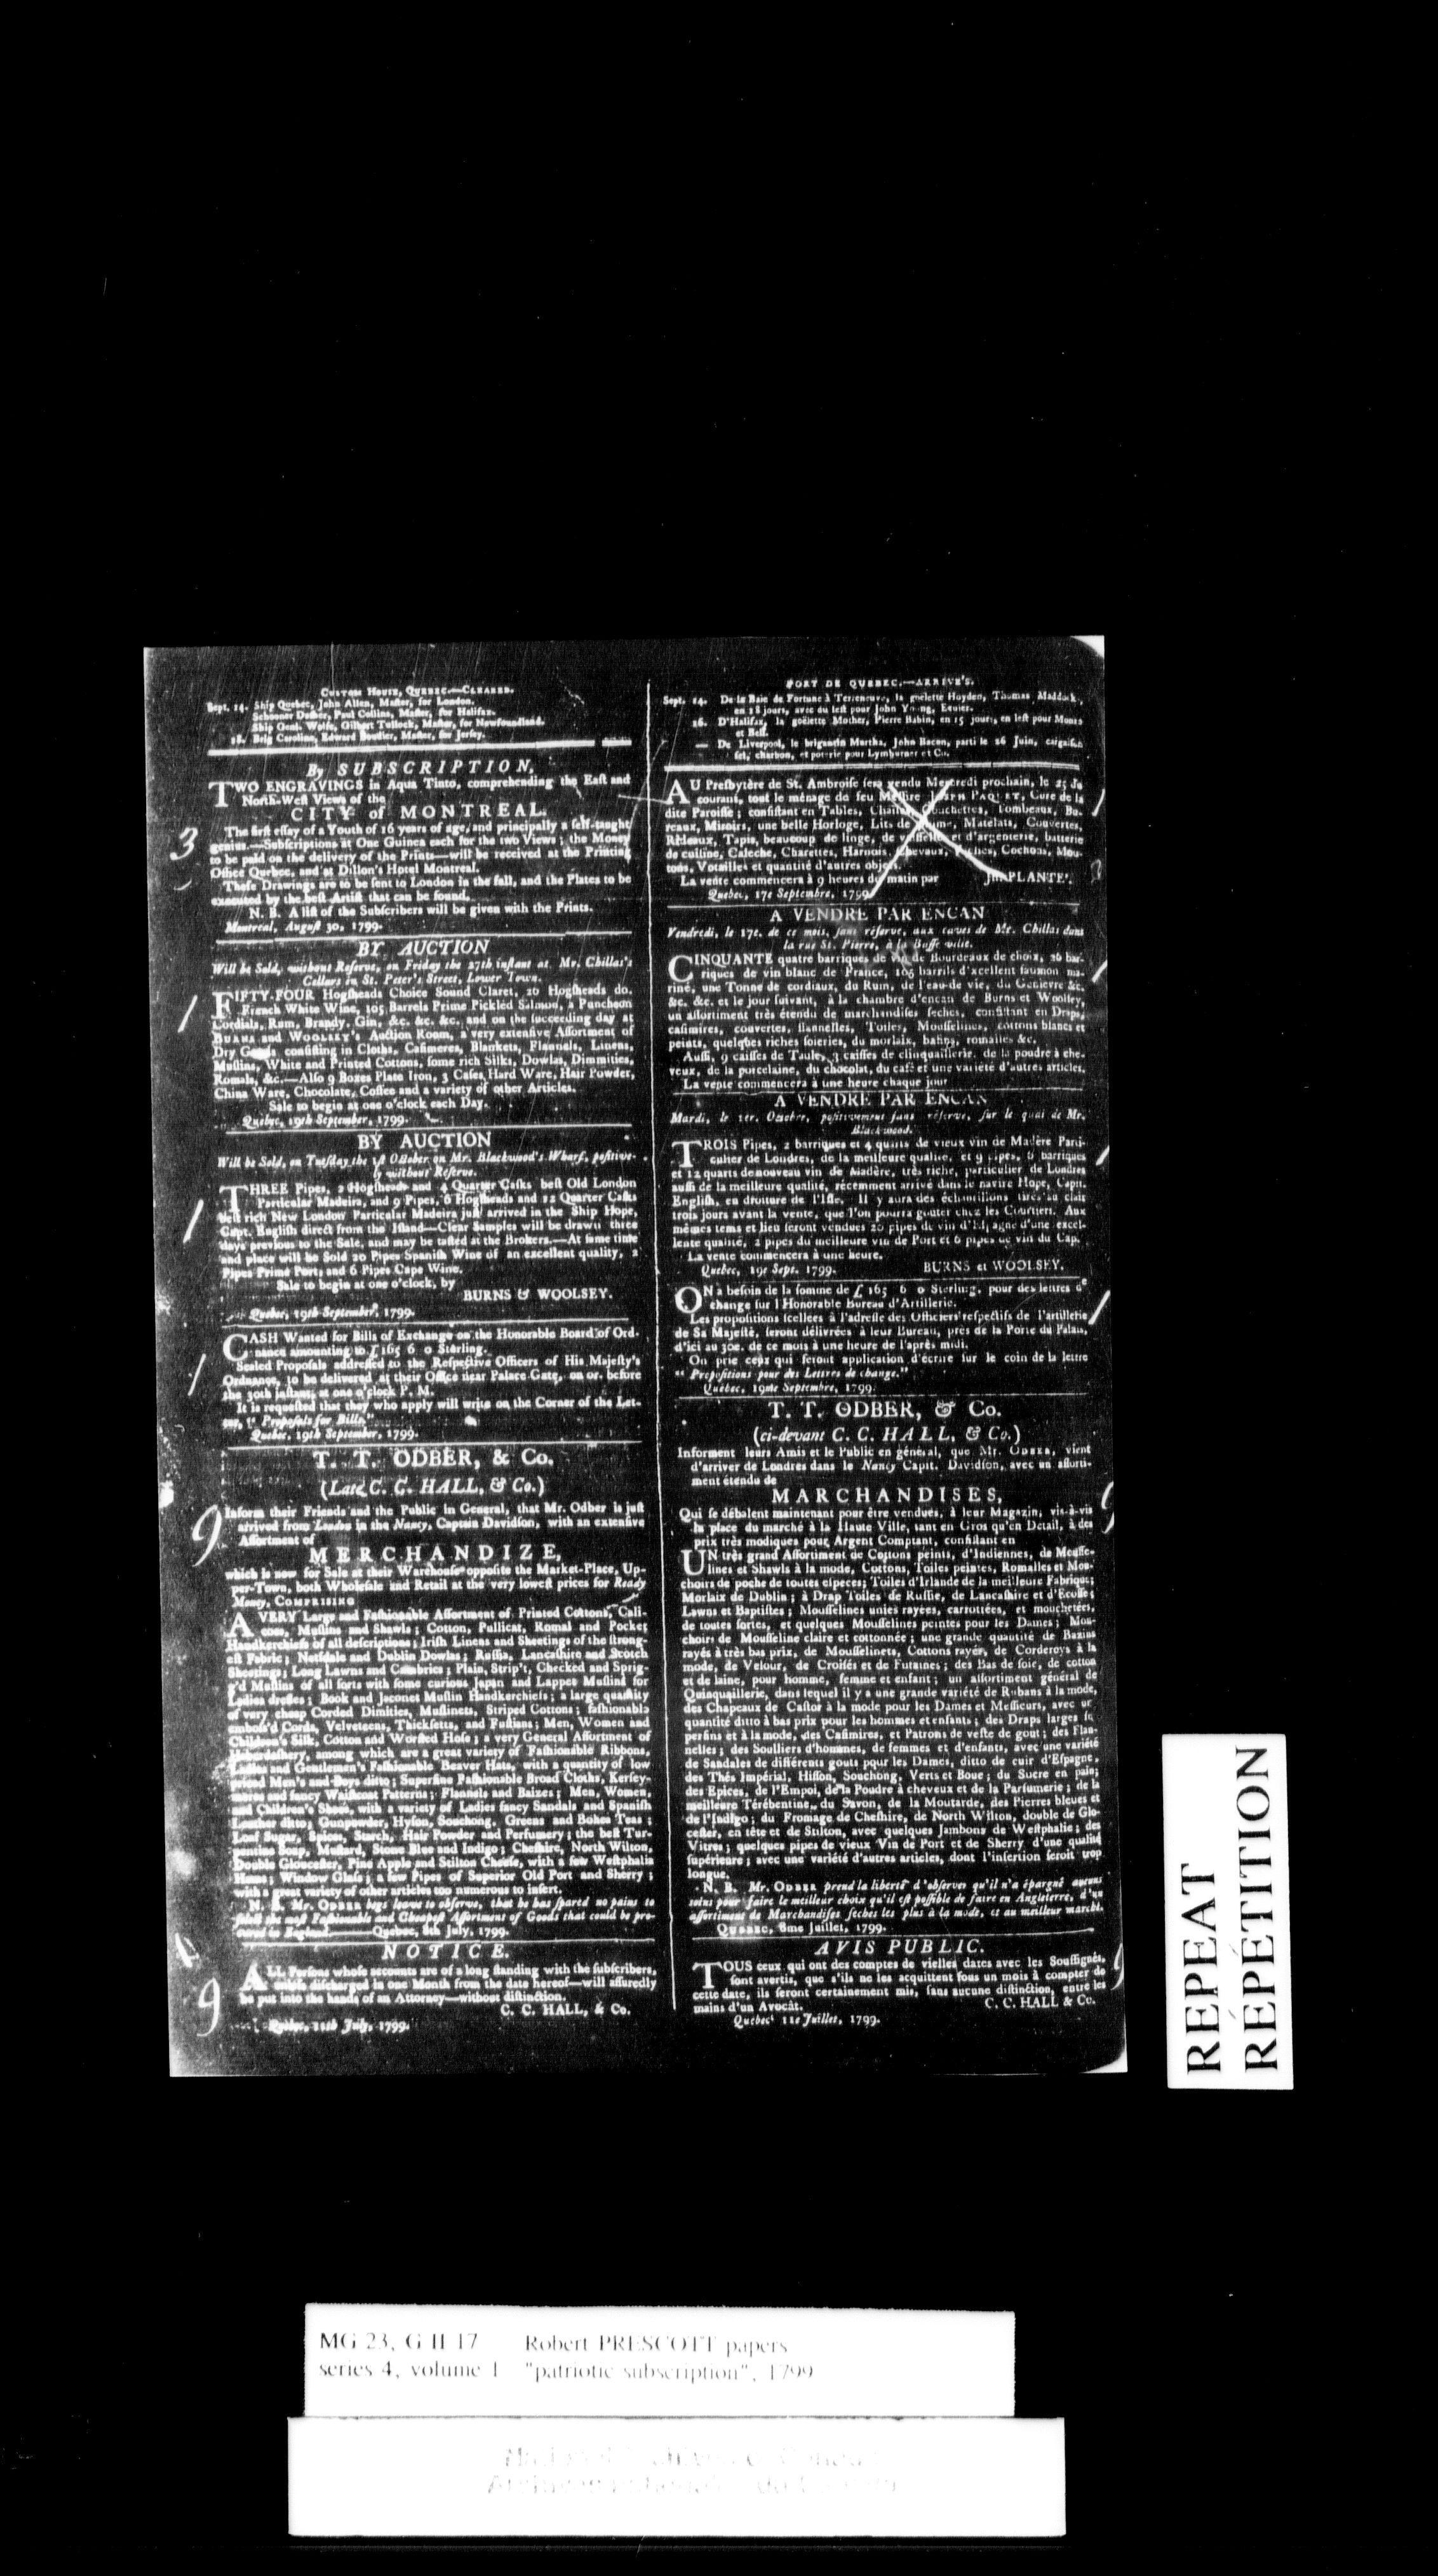 CUSTOM HOUSE, QUEBEC.—CLEARED.
Sept. 14. Ship Quebec, John Allen, Maſter, for London.
Schooner Daſher, Paul Collins, Maſter, for Halifax.
Ship Genl. Wolfe, Gilbert Tulloch, Maſter, for Newfoundland.
18. Brig Caroline, Edward Bouſlier, Maſter, for Jerſey.
By SUBSCRIPTION,
TWO ENGRAVINGS in Aqua Tinto, comprehending the Eaſt and
North-Weſt Views of the
CITY of MONTREAL.
The firſt eſſay of a Youth of 16 years of age, and principally a ſelf-taught
genius.—Subſcriptions at One Guinea each for the two Views; the Money
to be paid on the delivery of the Prints—will be received at the Printing
Office Quebec, and at Dillon's Hotel Montreal.
Theſe Drawings are to be ſent to London in the fall, and the Plates to be
executed by the beſt Artiſt that can be found.
N. B. A liſt of the Subſcribers will be given with the Prints.
Montreal, Auguſt 30, 1799.
3
BY AUCTION
Will be Sold, without Reſerve, on Friday the 27th inſtant at Mr. Chillas's
Cellars in St. Peter's Street, Lower Town.
FIFTY-FOUR Hogſheads Choice Sound Claret, 20 Hogſheads do.
French White Wine, 105 Barrels Prime Pickled Salmon, a Puncheon
Cordials, Rum, Brandy, Gin, &c. &c. &c. and on the ſucceeding day at
BURNS and WOOLSEY's Auction Room, a very extenſive Aſſortment of
Dry Goods conſiſting in Cloths, Caſimeres, Blankets, Flannels, Linens,
Muſlins, White and Printed Cottons, ſome rich Silks, Dowlas, Dimmities,
Romals, &c.—Alſo 9 Boxes Plate Iron, 3 Caſes Hard Ware, Hair Powder,
China Ware, Chocolate, Coffee and a variety of other Articles.
Sale to begin at one o'clock each Day.
Quebec, 19th September, 1799.
1
BY AUCTION
Will be Sold, on Tueſday the 1ſt October on Mr. Blackwood's Wharf, poſitive-
ly without Reſerve.
THREE Pipes, 2 Hogſheads and 4 Quarter Caſks beſt Old London
Particular Madeira, and 9 Pipes, 6 Hogſheads and 12 Quarter Caſks
beſt rich New London Particular Madeira juſt arrived in the Ship Hope,
Capt. Engliſh direct from the Iſland—Clear Samples will be drawn three
days previous to the Sale, and may be taſted at the Brokers.—At ſame time
and place will be Sold 20 Pipes Spaniſh Wine of an excellent quality, 2
Pipes Prime Port, and 6 Pipes Cape Wine.
Sale to begin at one o'clock, by
BURNS & WOOLSEY.
Quebec, 19th September, 1799.
1
CASH Wanted for Bills of Exchange on the Honorable Board of Ord-
nance amounting to £165 6 0 Sterling.
Sealed Proposals addreſſed to the Reſpective Officers of His Majeſty's
Ordnance, to be delivered at their Office near Palace Gate, on or before
the 30th inſtant, at one o'clock P. M.
It is requeſted that they who apply will write on the Corner of the Let-
ter, "Propoſals for Bills."
Quebec, 19th September, 1799.
1
T. T. ODBER, & Co.
(Late C. C. HALL, & Co.)
Inform their Friends and the Public in General, that Mr. Odber is juſt
arrived from London in the Nancy, Captain Davidſon, with an extenſive
Aſſortment of
MERCHANDIZE,
which is now for Sale at their Warehouſe oppoſite the Market-Place, Up-
per-Town, both Wholeſale and Retail at the very loweſt prices for Ready
Money, COMPRISING
A VERY Large and Faſhionable Aſſortment of Printed Cottons, Cali-
coes, Muſlins and Shawls; Cotton, Pullicat, Romal and Pocket
Handkerchiefs of all deſcriptions; Iriſh Linens and Sheetings of the ſtrong-
eſt Fabric; Netſdale and Dublin Dowlas; Ruſſia, Lancaſhire and Scotch
Sheetings; Long Lawns and Cambrics; Plain, Strip't, Checked and Sprig-
g'd Muſlins of all ſorts with ſome curious Japan and Lappet Muſlins for
Ladies dreſſes; Book and Jaconet Muſlin Handkerchiefs; a large quantity
of very cheap Corded Dimities, Muſlinets, Striped Cottons; faſhionable
emboſs'd Cords, Velveteens, Thickſetts, and Fuſtians; Men, Women and
Children's Silk, Cotton and Worſted Hoſe; a very General Aſſortment of
Haberdaſhery, among which are a great variety of Faſhionable Ribbons,
Ladies and Gentlemen's Faſhionable Beaver Hats, with a quantity of low
priced Men's and Boys ditto; Superfine Faſhionable Broad Cloths, Kerſey-
meres and fancy Waiſtcoat Patterns; Flannels and Baizes; Men, Women,
and Children's Shoes, with a variety of Ladies fancy Sandals and Spaniſh
Leather ditto; Gunpowder, Hyſon, Souchong, Greens and Bohea Teas;
Loaf Sugar, Spices, Starch, Hair Powder and Perfumery; the beſt Tur-
pentine Soap, Muſtard, Stone Blue and Indigo; Cheſhire, North Wilton,
Double Glouceſter, Pine Apple and Stilton Cheeſe, with a few Weſtphalia
Hams; Window Glaſs; a few Pipes of Superior Old Port and Sherry;
with a great variety of other articles too numerous to inſert.
N. B. Mr. ODBER begs leave to obſerve, that he has ſpared no pains to
ſelect the moſt Faſhionable and Cheapeſt Aſſortment of Goods that could be pro-
cured in England. Quebec, 8th July, 1799.
9
NOTICE.
ALL Perſons whoſe accounts are of a long ſtanding with the ſubſcribers,
unleſs diſcharged in one Month from the date hereof—will aſſuredly
be put into the hands of an Attorney—without diſtinction.
C. C. HALL, & Co.
Quebec, 11th July, 1799.
9
PORT DE QUEBEC.—ARRIVE'S.
Sept. 14. De la Baie de Fortune à Terreneuve, la goëlette Hoyden, Thomas Maddock,
en 18 jours, avec du leſt pour John Young, Ecuier.
16. D'Halifax, la goëlette Mother, Pierre Babin, en 15 jours, en leſt pour Munro
et Bell.
— De Liverpool, le brigantin Martha, John Bacon, parti le 26 Juin, cargaiſon
ſel, charbon, et poterie pour Lymburner et Co.
AU Preſbytère de St. Ambroiſe ſera vendu Mercredi prochain, le 25 du
courant, tout le ménage de feu Meſſire JOSEPH PAQUET, Curé de la
dite Paroiſſe; conſiſtant en Tables, Chaiſes, Couchettes, Tombeaux, Bu-
reaux, Miroirs, une belle Horloge, Lits de Plume, Matelats, Couvertes,
Rideaux, Tapis, beaucoup de linge, de vaiſſelle et d'argenterie, batterie
de cuiſine, Caleche, Charettes, Harnois, Chevaux, Vaches, Cochons, Mou-
tons, Volailles et quantité d'autres objets.
La vente commencera à 9 heures du matin par PLANTE'.
Quebec, 17e Septembre, 1799
A VENDRE PAR ENCAN
Vendredi, le 27e. de ce mois, ſans réſerve, aux caves de Mr. Chillas dans
la rue St. Pierre, à la Baſſe ville.
CINQUANTE quatre barriques de vin de Bourdeaux de choix, 20 bar-
riques de vin blanc de France, 105 barrils d'xcellent ſaumon ma-
riné, une Tonne de cordiaux, du Rum, de l'eau-de vie, du Genievre &c.
&c. &c. et le jour ſuivant, à la chambre d'encan de Burns et Woolſey,
un aſſortiment très étendu de marchandiſes ſeches, conſiſtant en Draps,
caſimires, couvertes, flannelles, Toiles, Mouſſelines, cottons blancs et
peints, quelques riches ſoieries, du morlaix, baſins, romalles &c.
Auſſi, 9 caiſſes de Taule, 3 caiſſes de clinquaillerie, de la poudre à che-
veux, de la porcelaine, du chocolat, du café et une variété d'autres articles.
La vente commencera à une heure chaque jour
A VENDRE PAR ENCAN
Mardi, le 1er. Octobre, poſitivement ſans réſerve, ſur le quai de Mr.
Blackwood.
TROIS Pipes, 2 barriques et 4 quarts de vieux vin de Madère Parti-
culier de Londres, de la meilleure qualité, et 9 pipes, 6 barriques
et 12 quarts de nouveau vin de Madère, très riche, particulier de Londres
auſſi de la meilleure qualité, récemment arrivé dans le navire Hope, Capt.
Engliſh, en droiture de l'Iſle. Il y aura des échantillons tirés au clair
trois jours avant la vente, que l'on pourra gouter chez les Courtiers. Aux
mêmes tems et lieu ſeront vendues 20 pipes de vin d'Eſpagne d'une excel-
lente qualité, 2 pipes du meilleure vin de Port et 6 pipes de vin du Cap.
La vente commencera à une heure.
Quebec, 19e Sept. 1799. BURNS et WOOLSEY.
ON a beſoin de la ſomme de £165 6 0 Sterling, pour des lettres de
change ſur l'Honorable Bureau d'Artillerie.
Les propoſitions ſcellees à l'adreſſe des Officiers reſpectifs de l'artillerie
de Sa Majeſté, ſeront délivrées à leur Bureau, près de la Porte du Palais,
d'ici au 30e. de ce mois à une heure de l'après midi.
On prie ceux qui feront application d'écrire ſur le coin de la lettre
"Propoſitions pour des Lettres de change."
Québec, 19me Septembre, 1799.
T. T. ODBER, & Co.
(ci-devant C. C. HALL, & Co.)
Informent leurs Amis et le Public en général, que Mr. ODBER, vient
d'arriver de Londres dans le Nancy Capit. Davidſon, avec un aſſorti-
ment étendu de
MARCHANDISES,
Qui ſe débalent maintenant pour être vendues, à leur Magazin, vis-à-vis
la place du marché à la Haute Ville, tant en Gros qu'en Detail, à des
prix très modiques pour Argent Comptant, conſiſtant en
UN très grand Aſſortiment de Cottons peints, d'Indiennes, de Mouſſe-
lines et Shawls à la mode, Cottons, Toiles peintes, Romalles et Mou-
choirs de poche de toutes eſpeces; Toiles d'Irlande de la meilleure Fabrique;
Morlaix de Dublin; à Drap Toiles de Ruſſie, de Lancaſhire et d'Ecoſſe;
Lawns et Baptiſtes; Mouſſelines unies rayées, carrotées, et mouchetées,
de toutes ſortes, et quelques Mouſſelines peintes pour les Dames; Mou-
choirs de Mouſſeline claire et cottonnée; une grande quantité de Bazins
rayés à très bas prix, de Mouſſelinets, Cottons rayés, de Corderoys à la
mode, de Velour, de Croiſés et de Futaines; des Bas de ſoie, de cotton
et de laine, pour homme, femme et enfant; un aſſortiment général de
Quinquaillerie, dans lequel il y a une grande variété de Rubans à la mode,
des Chapeaux de Caſtor à la mode pour les Dames et Meſſieurs, avec une
quantité ditto à bas prix pour les hommes et enfants; des Draps larges ſu-
perfins et à la mode, des Caſimires, et Patrons de veſte de gout; des Flan-
nelles; des Soulliers d'hommes, de femmes et d'enfants, avec une variété
de Sandales de différents gouts pour les Dames, ditto de cuir d'Eſpagne,
des Thés Impérial, Hiſſon, Souchong, Verts et Boue; du Sucre en pain;
des Epices, de l'Empoi, de la Poudre à cheveux et de la Parfumerie; de la
meilleure Térébentine, du Savon, de la Moutarde, des Pierres bleues et
de l'Indigo; du Fromage de Cheſhire, de North Wilton, double de Glo-
ceſter, en tête et de Stilton, avec quelques Jambons de Weſtphalie; des
Vitres; quelques pipes de vieux Vin de Port et de Sherry d'une qualité
ſupérieure; avec une variété d'autres articles, dont l'inſertion ſeroit trop
longue.
N. B. Mr. ODBER prend la liberté d'obſerver qu'il n'a épargné aucuns
ſoins pour faire le meilleur choix qu'il eſt poſſible de faire en Angleterre, d'un
aſſortiment de Marchandiſes ſeches les plus à la mode, et au meilleur marché.
QUEBEC, 8me Juillet, 1799.
AVIS PUBLIC.
TOUS ceux qui ont des comptes de vielles dates avec les Souſſignés,
ſont avertis, que s'ils ne les acquittent ſous un mois à compter de
cette date, ils ſeront certainement mis, ſans aucune diſtinction, entre les
mains d'un Avocât. C. C. HALL & Co.
Quebec 11e Juillet, 1799.
REPEAT
RÉPÉTITION
MG 23, G II 17 Robert PRESCOTT papers
series 4, volume 1 "patriotic subscription", 1799